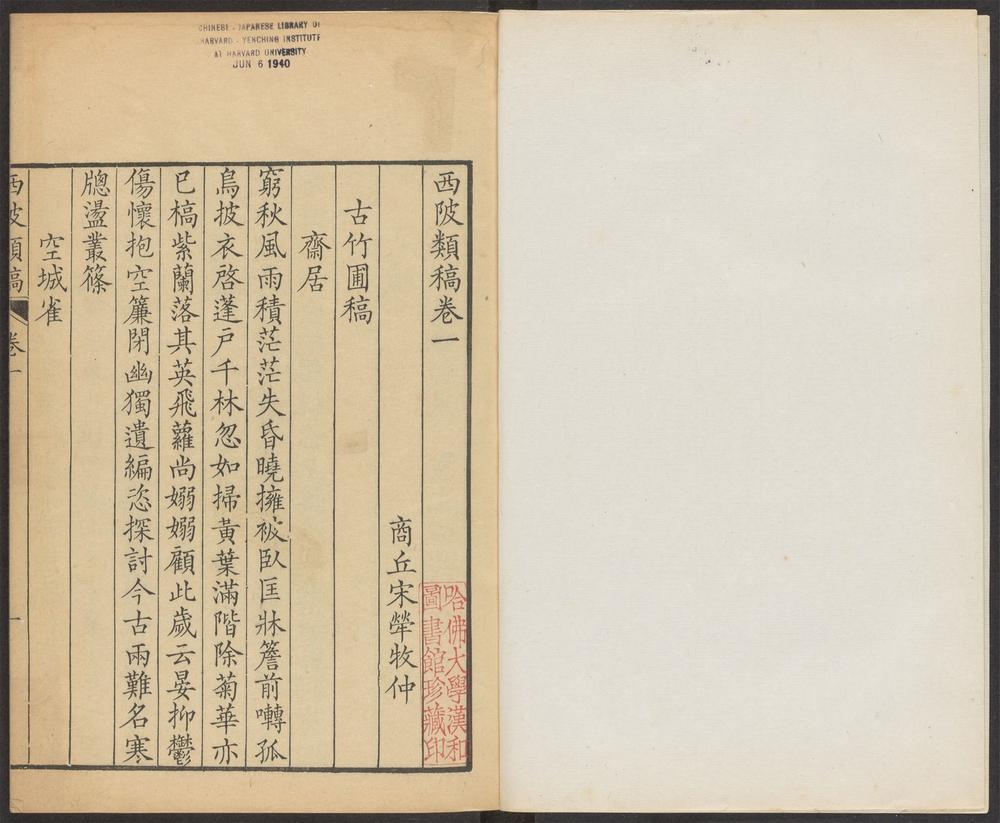 CHINESE - JAPANESE LIBRARY OF
HARVARD - YENCHING INSTITUTE
AT HARVARD UNIVERSITY
JUN 6 1940
西陂類稿卷一
商丘宋犖牧仲
古竹圃稿
齋居
窮秋風雨積茫茫失昏曉擁被臥匡牀簷前囀孤
鳥披衣啓蓬戸千林忽如掃黃葉滿階除菊華亦
已槁紫蘭落其英飛蘿尚嫋嫋顧此歲云晏抑鬱
傷懷抱空簾閉幽獨遺編恣探討今古兩難名寒
牕盪叢篠
空城雀
西陂類稿
卷一
一
哈佛大學漢和
圖書館珍藏印